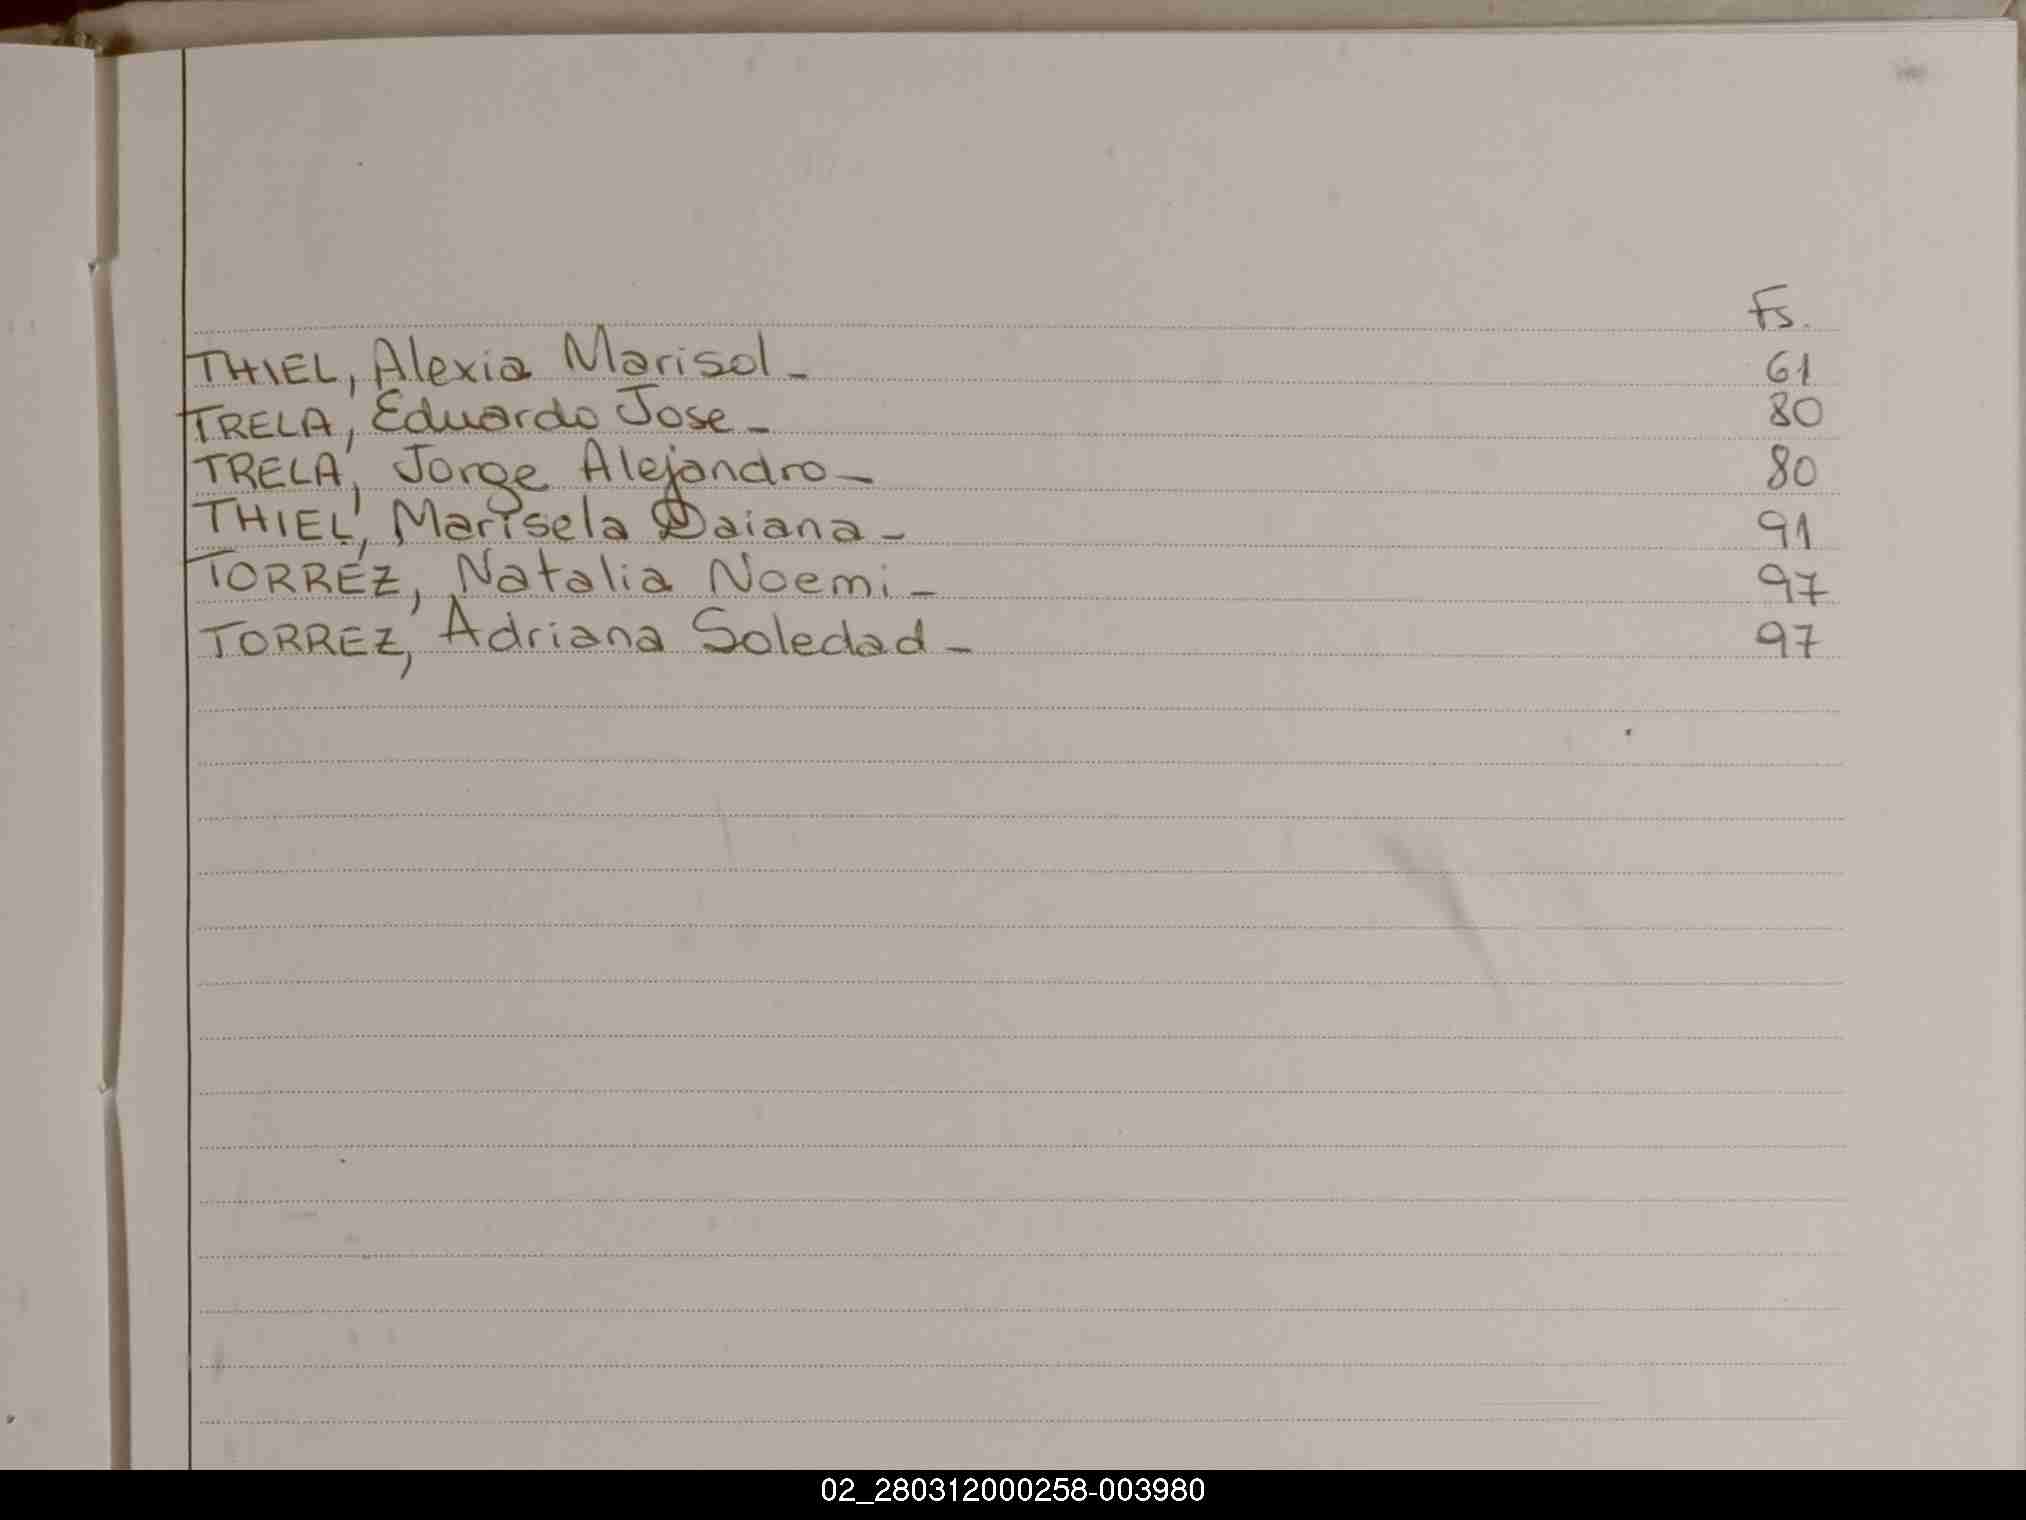 Fs.
THIEL, Alexia Marisol - 61
TRELA, Eduardo Jose - 80
TRELA, Jorge Alejandro - 80
THIEL, Marisela Daiana - 91
TORREZ, Natalia Noemi - 97
TORREZ, Adriana Soledad - 97
02_280312000258-003980